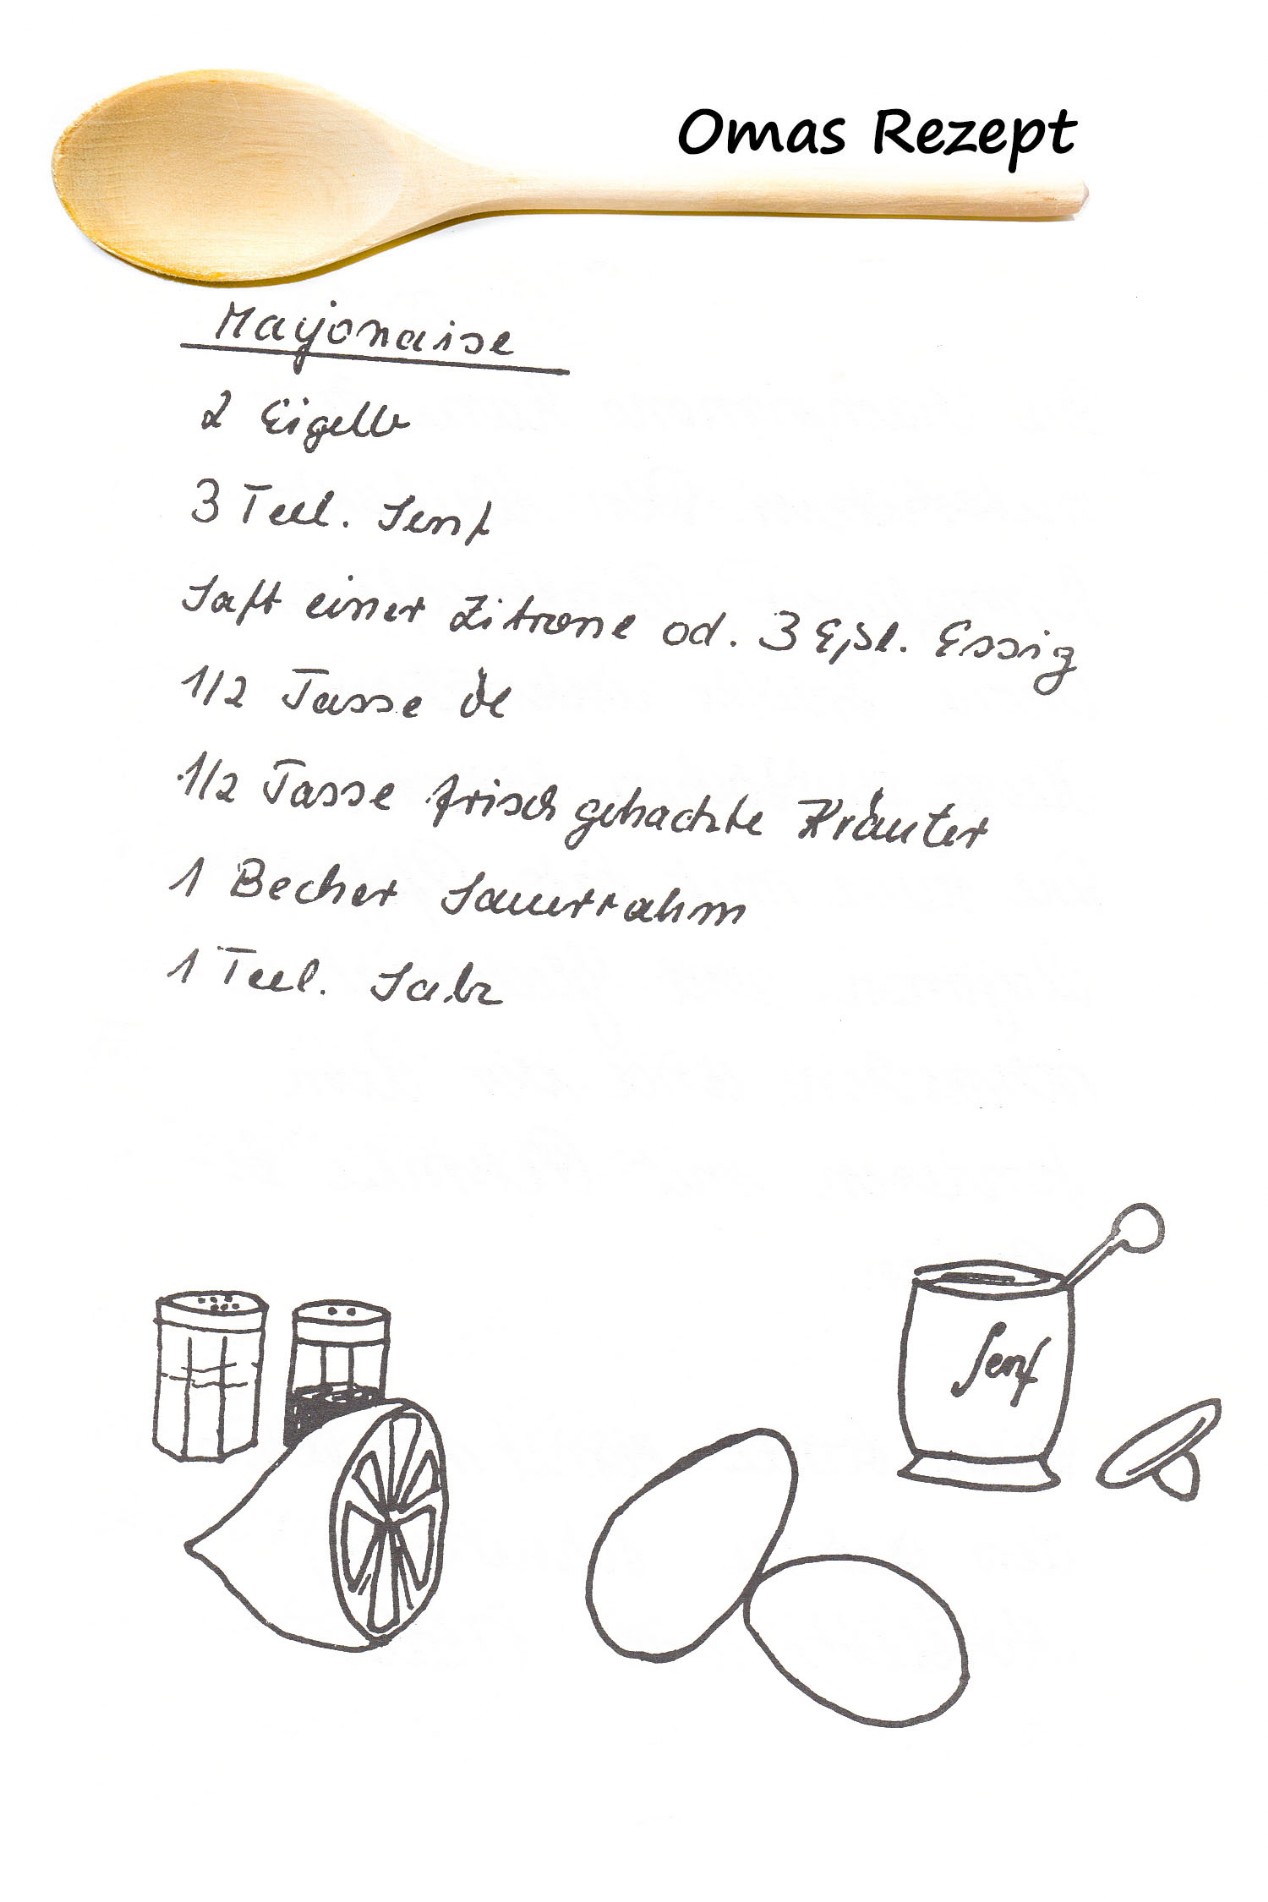 Omas Rezept
Mayonaise
2 Eigelb
3 Teel. Senf
Saft einer Zitrone od. 3 Eßl. Essig
1/2 Tasse Öl
1/2 Tasse frisch gehackte Kräuter
1 Becher Sauerrahm
1 Teel. Salz
Senf